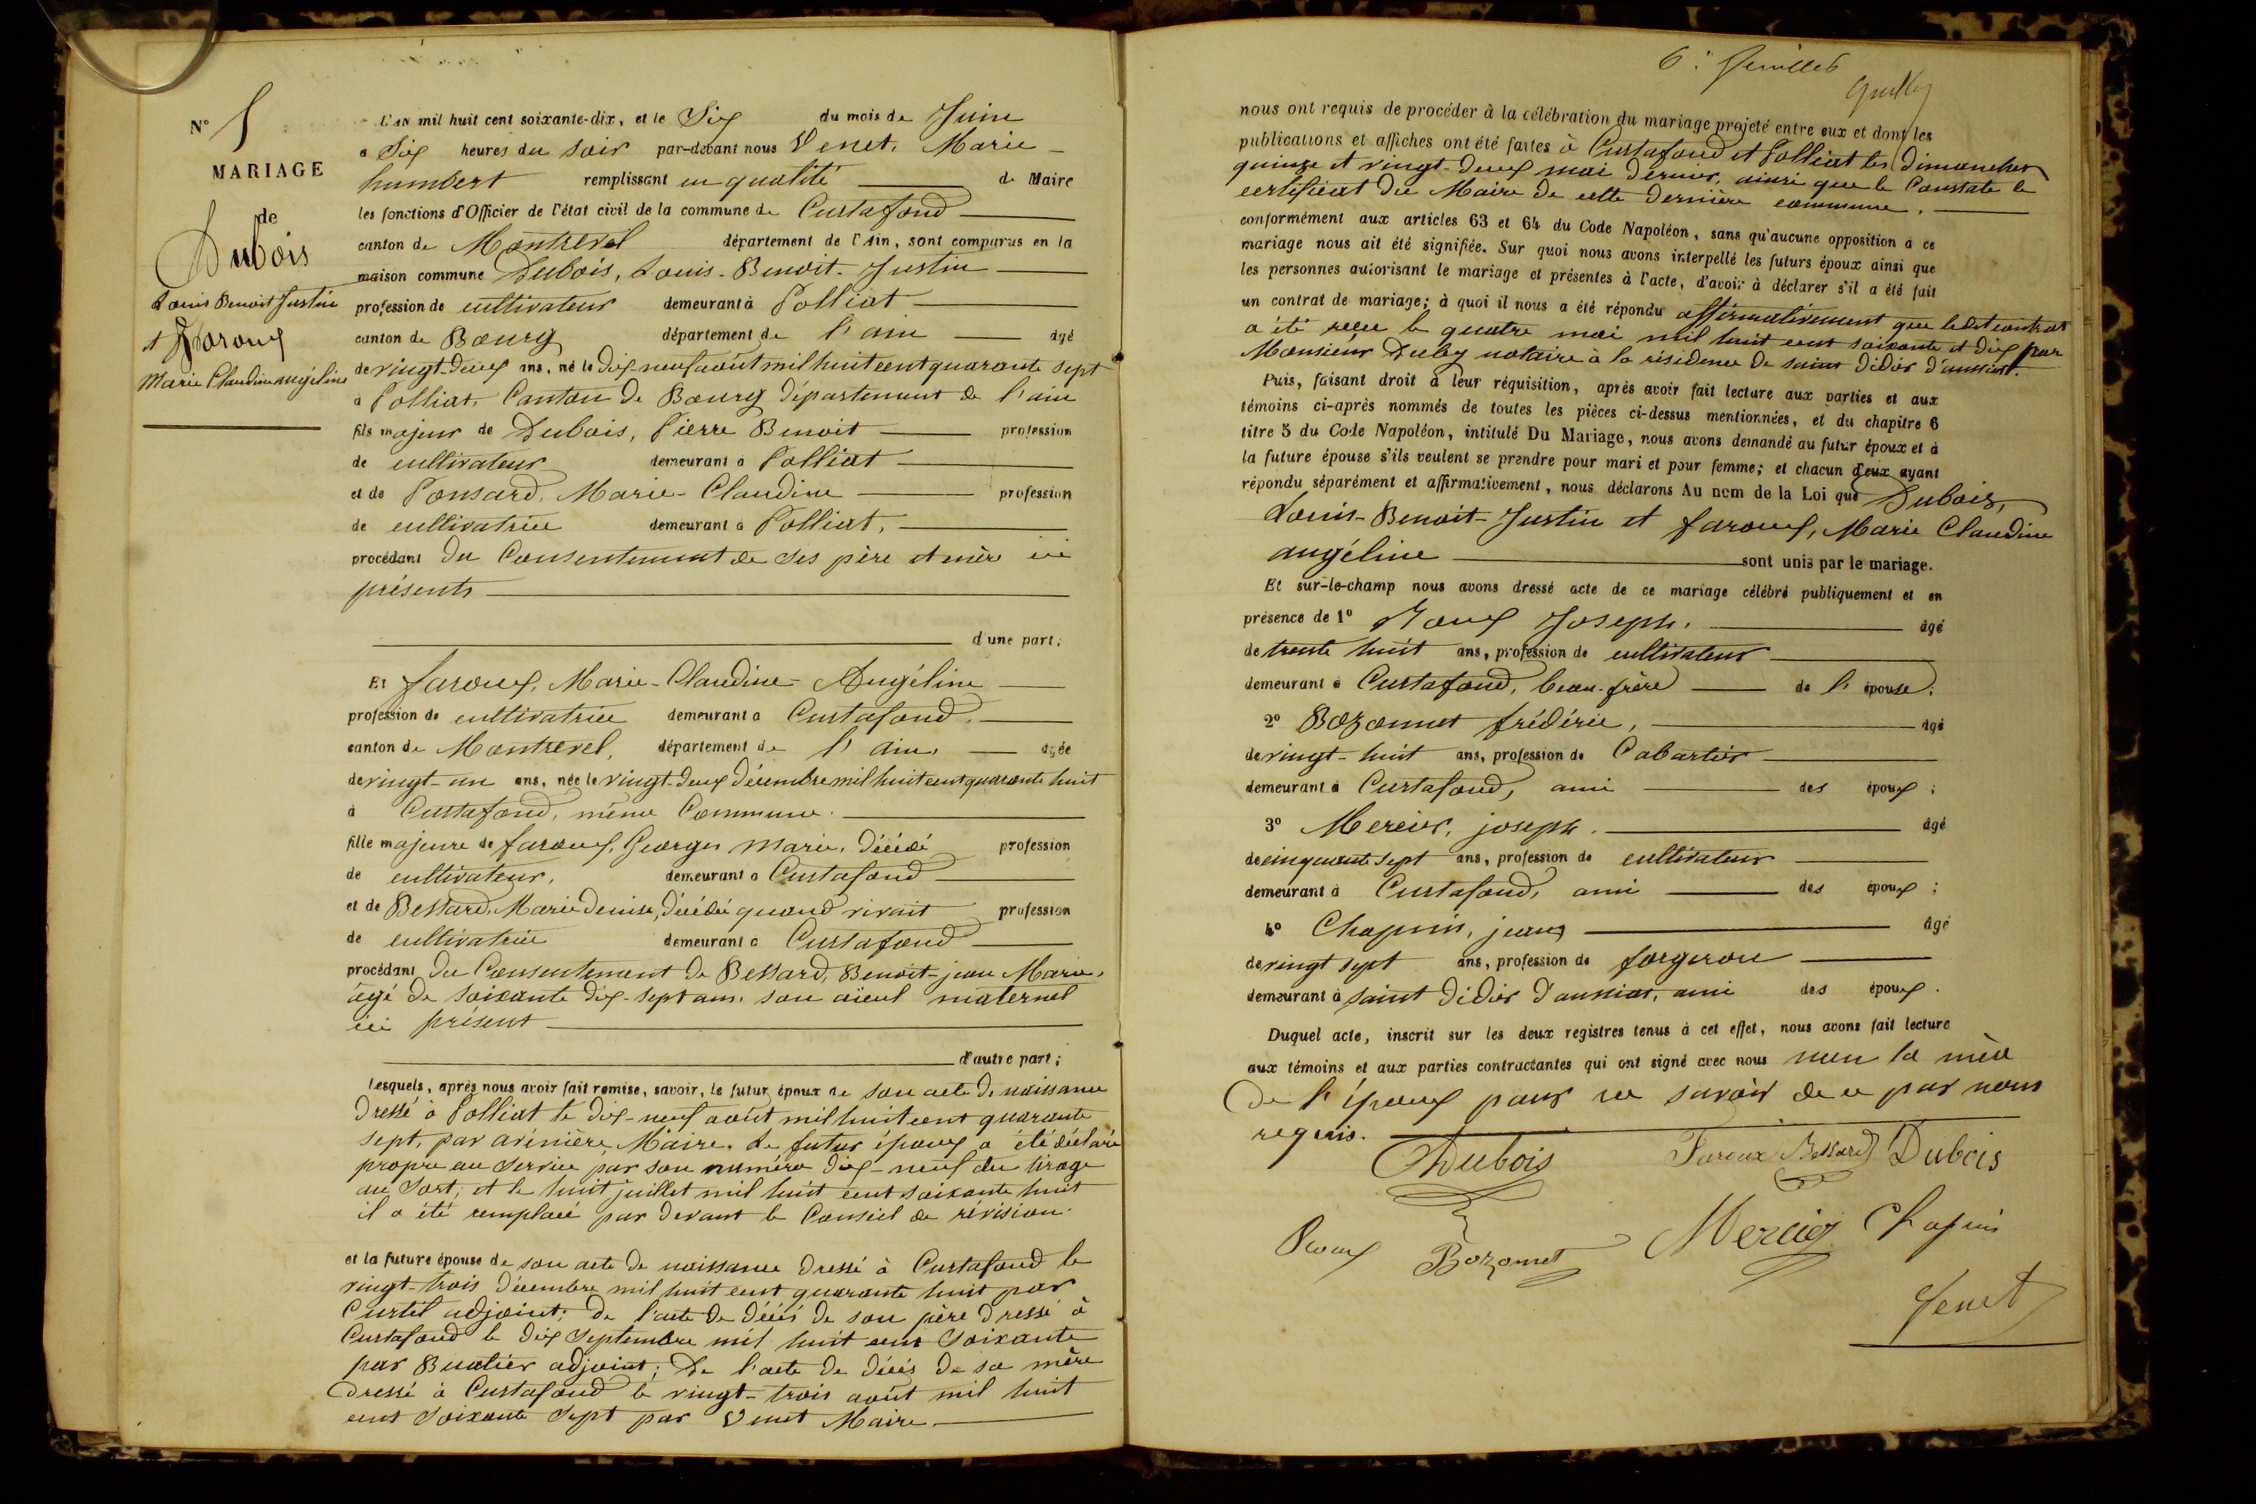 N° 5
MARIAGE
de
Dubois
Louis Benoit Justin
et Faroux
Marie Claudine angéline
L'AN mil huit cent soixante-dix, et le Six du mois de Juin
à Six heures du soir par-devant nous Venet, Marie
humbert remplissant en qualité de Maire
les fonctions d'Officier de l'état civil de la commune de Curtafond
canton de Montrevel département de l'Ain, sont comparus en la
maison commune Dubois, Louis-Benoit-Justin
profession de cultivateur demeurant à Polliat
canton de Bourg département de l'ain âgé
de vingt-deux ans, né le dix neuf août mil huit cent quarante sept
à Polliat, Canton de Bourg département de l'ain
fils majeur de Dubois, Pierre Benoit profession
de cultivateur demeurant à Polliat
et de Ponsard, Marie-Claudine profession
de cultivatrice demeurant à Polliat,
procédant du Consentement de ses père et mère ici
présents
d'une part;
Et faroux, Marie-Claudine-Angéline
profession de cultivatrice demeurant à Curtafond
canton de Montrevel, département de l'ain âgée
de vingt-un ans, née le vingt-deux décembre mil huit cent quarante huit
à Curtafond, même Commune.
fille majeure de faroux, Georges Marie, décédé profession
de cultivateur, demeurant à Curtafond
et de Bessard, Marie denise, décédée quand vivait profession
de cultivatrice demeurant à Curtafond
procédant du Consentement de Bessard, Benoit-jean Marie,
âgé de soixante dix-sept ans, son aïeul maternel
ici présent
d'autre part;
Lesquels, après nous avoir fait remise, savoir, le futur époux de son acte de naissance
dressé à Polliat le dix-neuf août mil huit cent quarante
sept, par avinière, Maire. Le futur époux a été déclaré
propre au service par son numéro dix-neuf du tirage
au sort, et le huit juillet mil huit cent soixante huit
il a été remplacé par devant le Conseil de révision.
et la future épouse de son acte de naissance dressé à Curtafond le
vingt-trois décembre mil huit cent quarante huit par
Curtil adjoint; de l'acte de décès de son père dressé à
Curtafond le dix septembre mil huit cent soixante
par Buatier adjoint; De l'acte de décès de sa mère
dressé à Curtafond le vingt-trois août mil huit
cent soixante sept par Venet Maire.
6e feuillet
nous ont requis de procéder à la célébration du mariage projeté entre eux et dont les
publications et affiches ont été faites à Curtafond et Polliat les dimanches
quinze et vingt-deux mai dernier, ainsi que le Constate le
certificat du Maire de cette dernière commune.
conformément aux articles 63 et 64 du Code Napoléon, sans qu'aucune opposition à ce
mariage nous ait été signifiée. Sur quoi nous avons interpellé les futurs époux ainsi que
les personnes autorisant le mariage et présentes à l'acte, d'avoir à déclarer s'il a été fait
un contrat de mariage; à quoi il nous a été répondu affirmativement que ledit contrat
a été reçu le quatre mai mil huit cent soixante et dix par
Monsieur Duby notaire à la résidence de saint didier d'aussiat.
Puis, faisant droit à leur réquisition, après avoir fait lecture aux parties et aux
témoins ci-après nommés de toutes les pièces ci-dessus mentionnées, et du chapitre 6
titre 5 du Code Napoléon, intitulé Du Mariage, nous avons demandé au futur époux et à
la future épouse s'ils veulent se prendre pour mari et pour femme; et chacun d'eux ayant
répondu séparément et affirmativement, nous déclarons Au nom de la Loi que Dubois,
Louis-Benoit-Justin et faroux, Marie Claudine
angéline sont unis par le mariage.
Et sur-le-champ nous avons dressé acte de ce mariage célébré publiquement et en
présence de 1° Roux Joseph. âgé
de trente huit ans, profession de cultivateur
demeurant à Curtafond, beau-frère de l'épouse;
2° Bozonnet frédéric, âgé
de vingt-huit ans, profession de Cabartier
demeurant à Curtafond, ami des époux;
3° Mercier, joseph. âgé
de cinquante sept ans, profession de cultivateur
demeurant à Curtafond, ami des époux;
4° Chapuis, jean âgé
de vingt sept ans, profession de forgeron
demeurant à saint didier d'aussiat, ami des époux.
Duquel acte, inscrit sur les deux registres tenus à cet effet, nous avons fait lecture
aux témoins et aux parties contractantes qui ont signé avec nous non la mère
De l'époux pour ne savoir de ce par nous
requis.
Dubois Faroux Bessard Dubois
Roux Bozonnet Mercier Chapuis
Venet